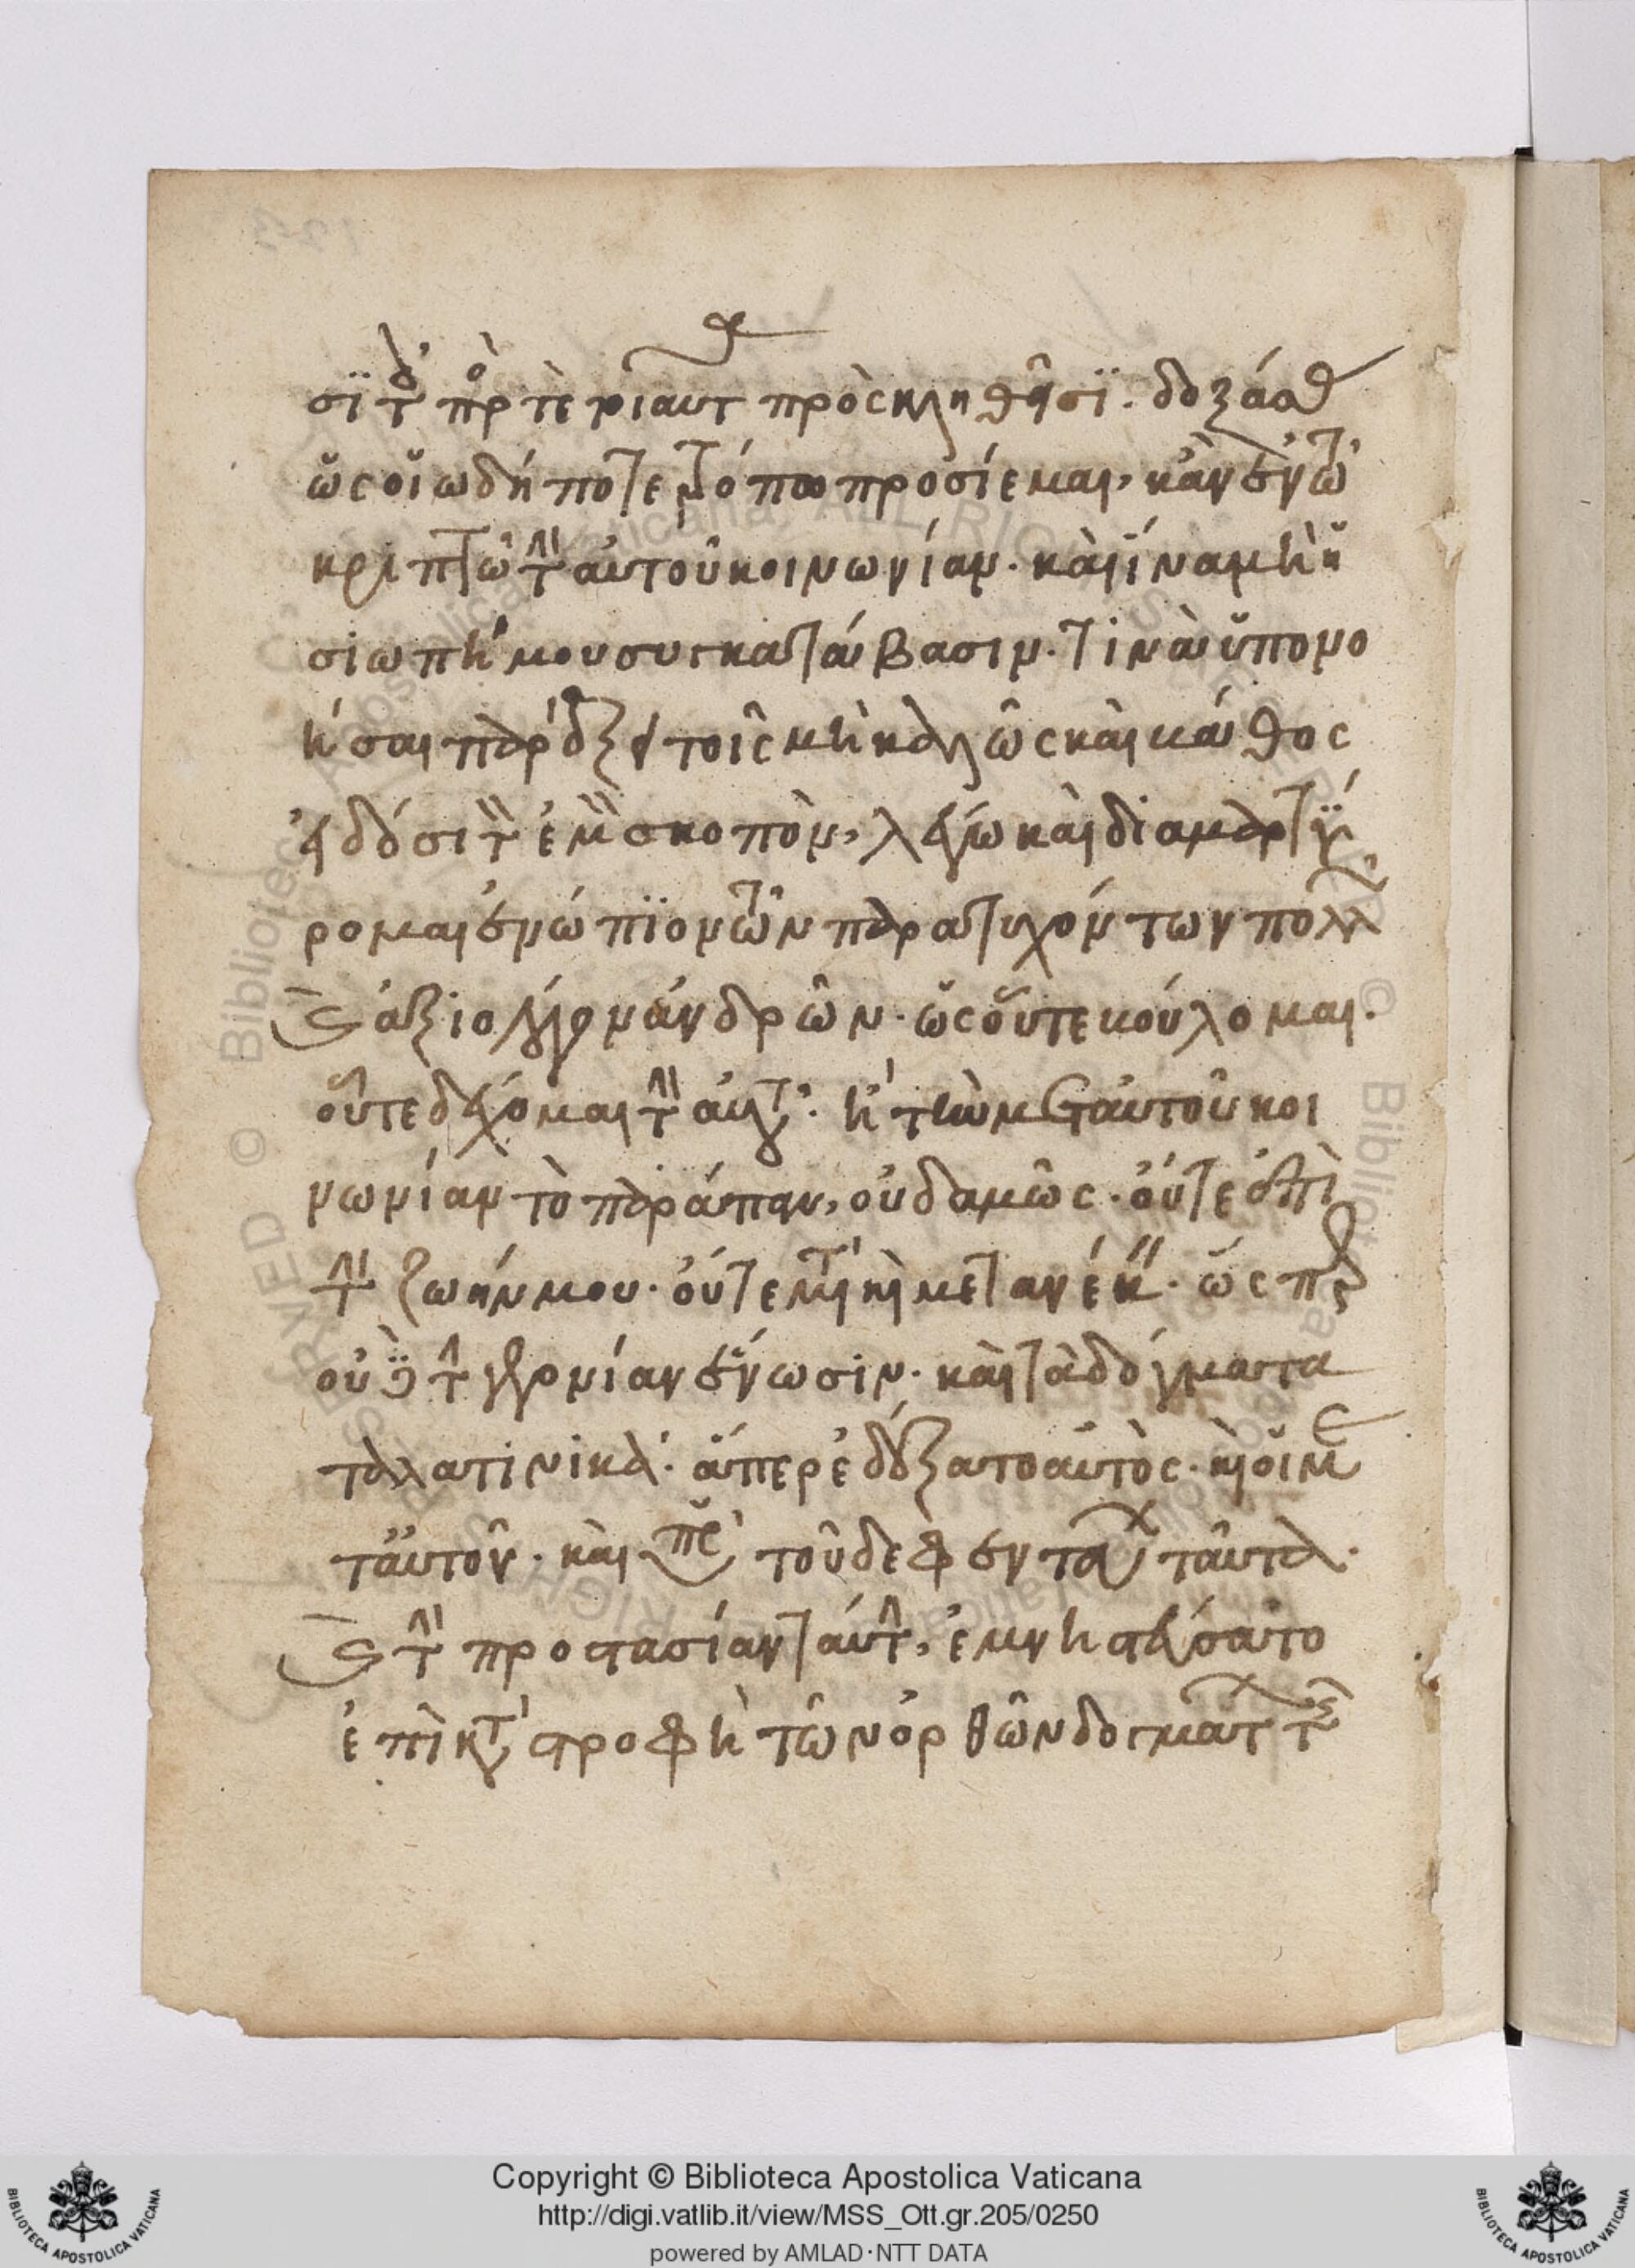 ὡς οἱωδήποτε τρόπω προσίεμαι, κἂν ἐν τῶ
κρυπτῶ τὴν αὐτοῦ κοινωνίαν. καὶ ἵνα μὴ ἡ
σιωπή μου συγκατάβασιν. τινὰ ὑπονο
ῆσαι παρέξει τοῖς μὴ καλῶς καὶ βάθος
εἰδόσι τὸν ἐμὸν σκοπὸν, λέγω καὶ διαμαρτύ
ρομαι ἐνώπιον τῶν παρατυχόντων πολλῶν
καὶ ἀξιολόγων ἀνδρῶν. ὡς οὔτε βούλομαι.
οὔτε δέχομαι τὴν αὐτοῦ. ἢ τῶν μετ' αὐτοῦ κοι
νωνίαν τὸ παράπαν, οὐδαμῶς. οὔτε ἐπὶ
τὴν ζωήν μου. οὔτε μετὰ
οὐδὲ τὴν γεγονυῖαν ἕνωσιν. καὶ τὰ δόγματα
τὰ λατινικά. ἅπερ ἐδέξατο αὐτὸς. καὶ οἱ με
τ' αὐτοῦ. καὶ ὑπὲρ τοῦ δεφενστεύειν ταῦτα.
καὶ τὴν προστασίαν ταύτην, ἐμνηστεύσατο
ἐπὶ καταστροφῆ τῶν ὀρθῶν δογμάτων τῆς
Copyright © Biblioteca Apostolica Vaticana
http://digi.vatlib.it/view/MSS_Ott.gr.205/0250
powered by AMLAD·NTT DATA